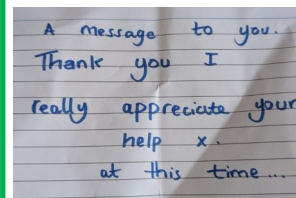 A message to you.
Thank you I
really appreciate your
help x.
at this time...